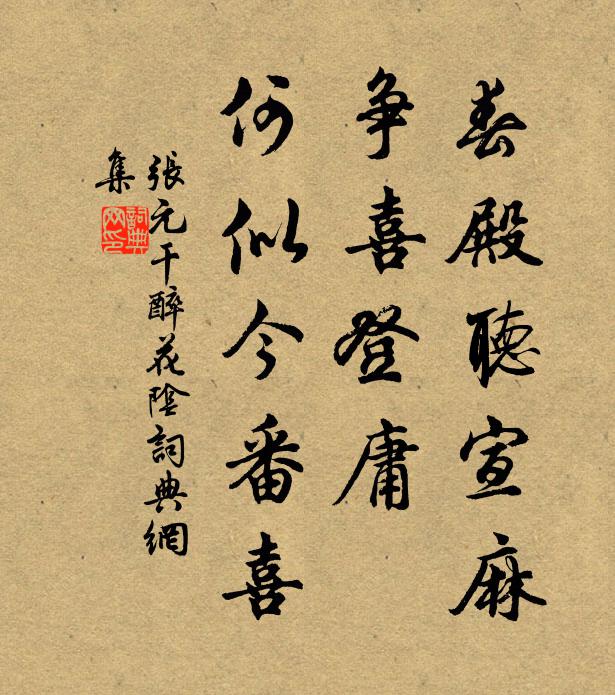 春殿聽宣麻
争喜登庸
何似今番喜
張元干醉花陰詞典網
集
詞典
网印